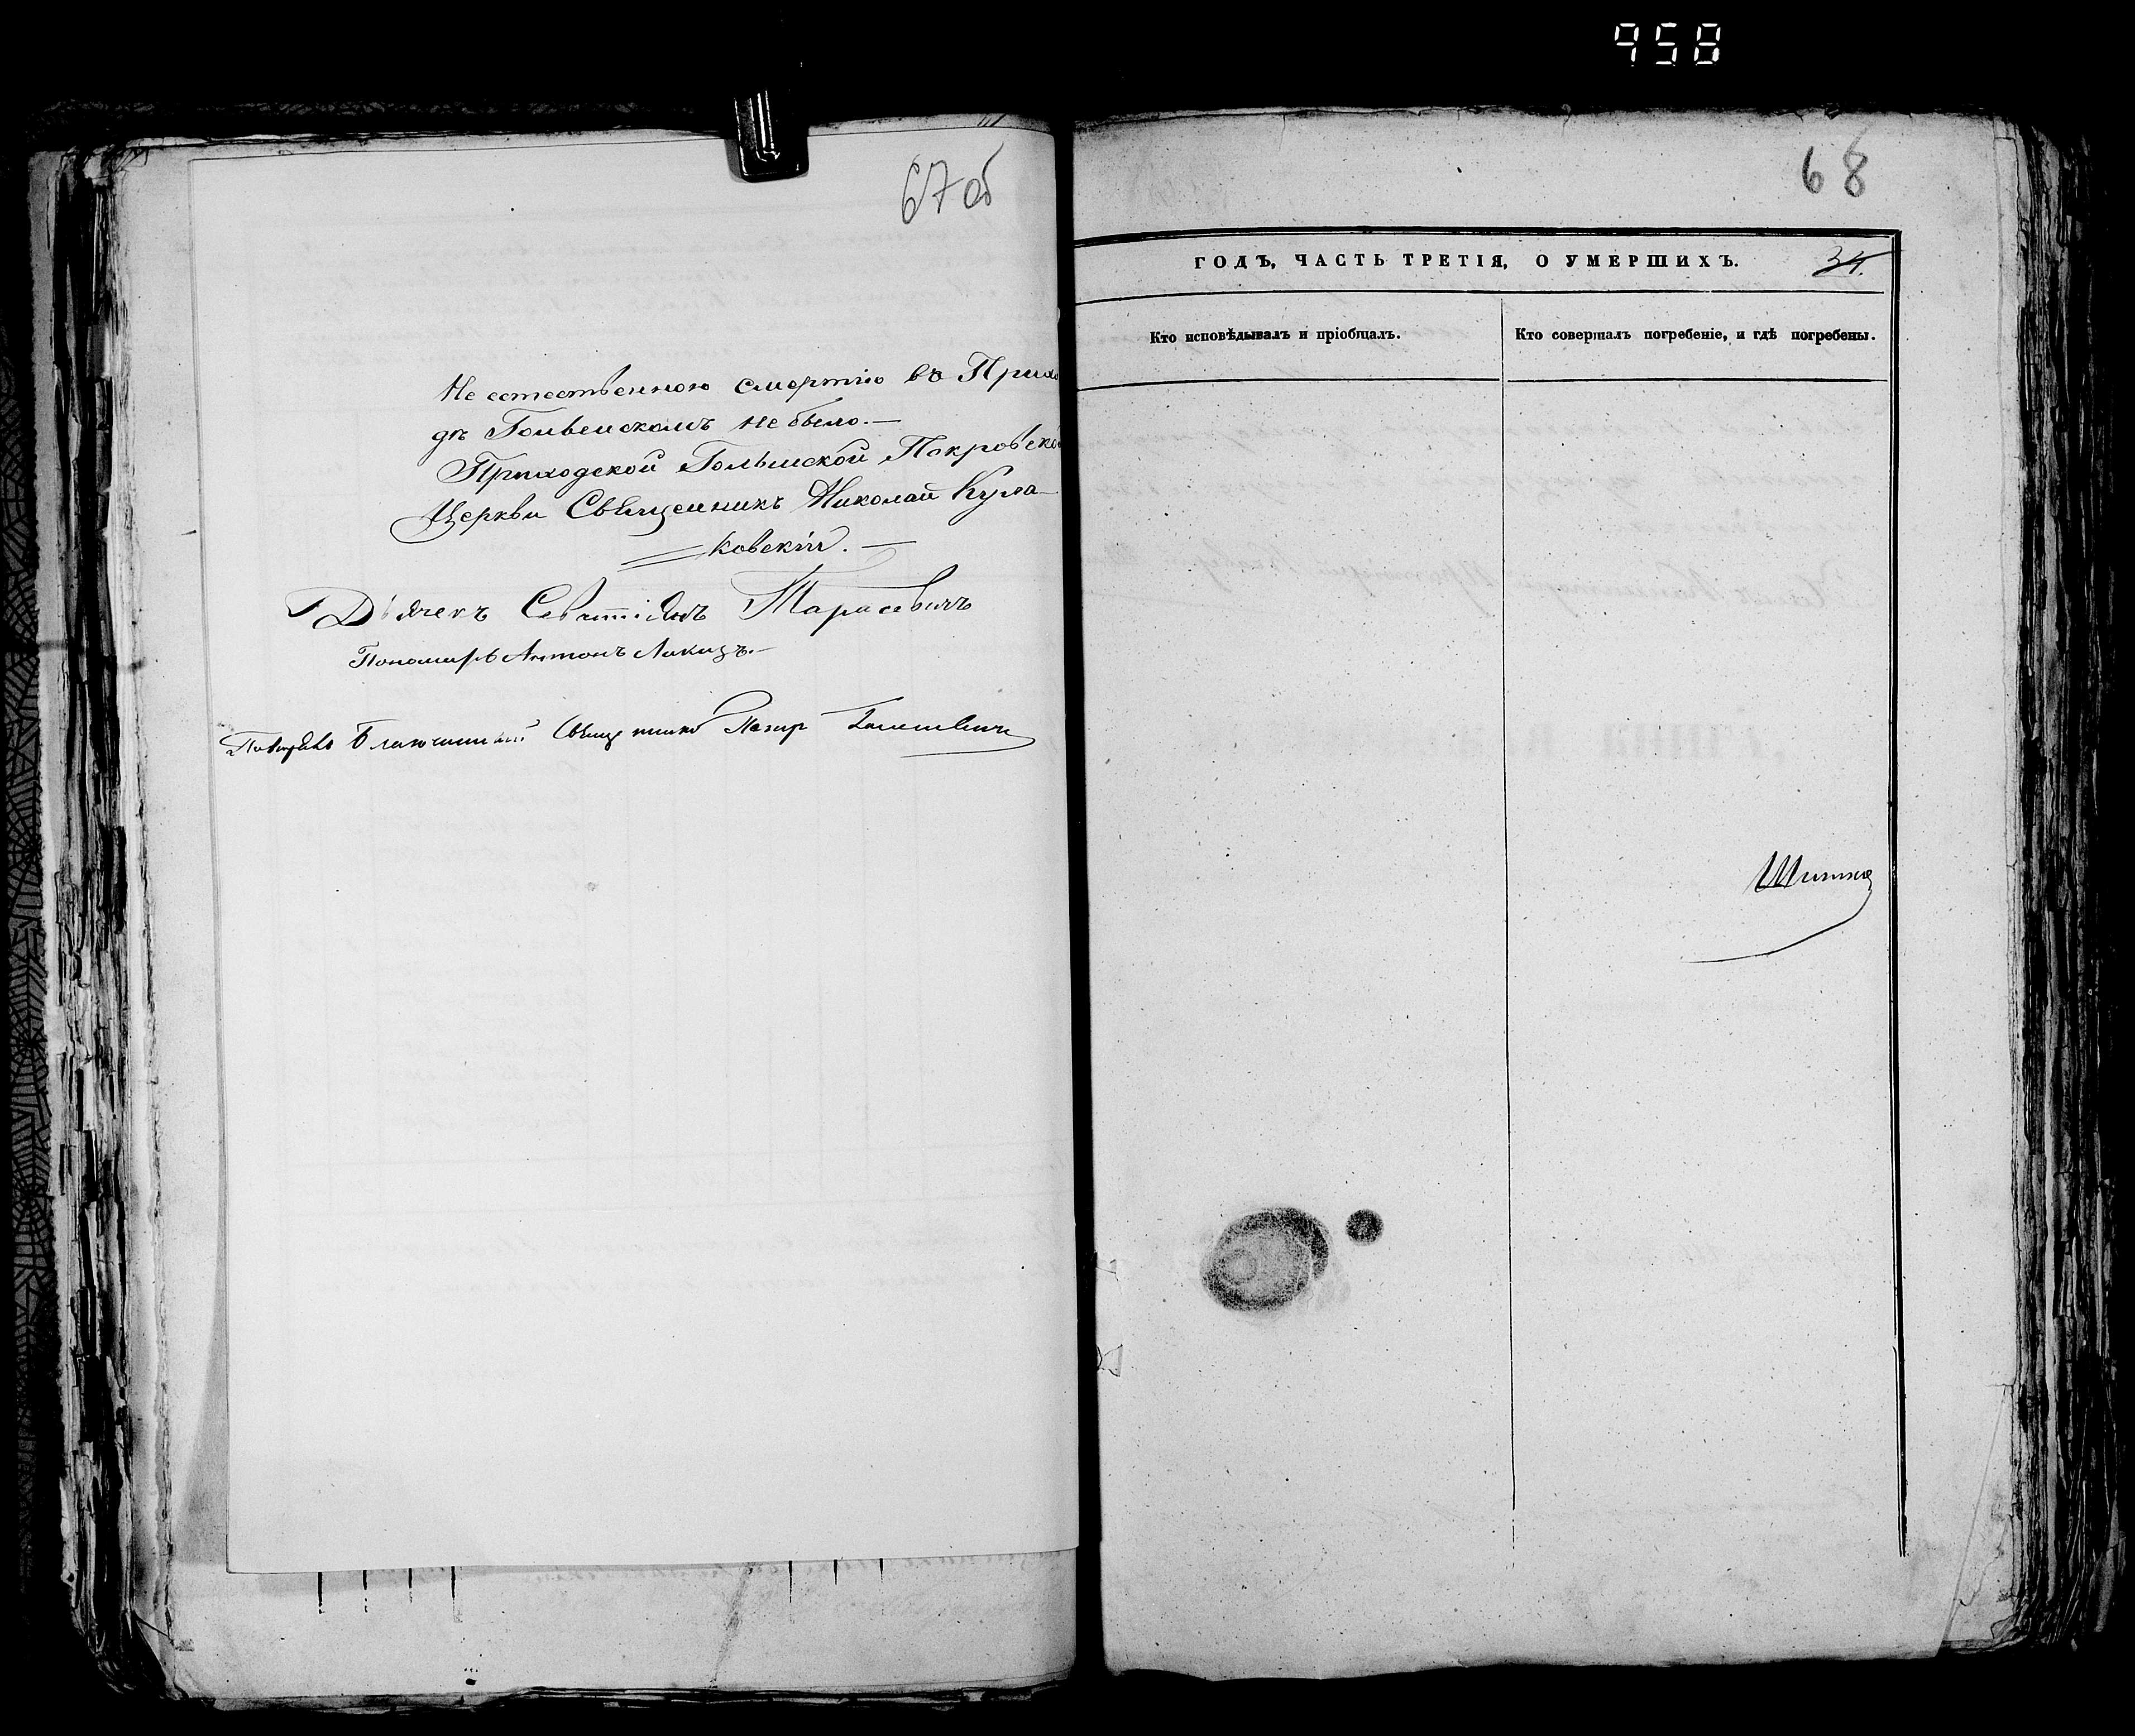 958
67 об
Не естественною смертію въ Прихо
дѣ Гольменскомъ не было.—
Приходской Гольмской Покровской
Церкви Священникъ Николай Кула-
ковскій.—
Дьячекъ Севастіянъ Тарасевичъ
Пономарь Антонъ
Благочинный Священникъ
68
ГОДЪ, ЧАСТЬ ТРЕТІЯ, О УМЕРШИХЪ. 34.
Кто исповѣдывалъ и пріобщалъ.
Кто совершалъ погребеніе, и гдѣ погребены.